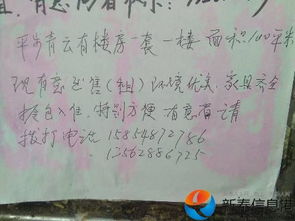 平步青云有楼房一套一楼 面积100平米
现有意出售(租)环境优美,家具齐全
拎包入住,特别方便,有意者请
拨打电话 15854872786
13562886725
新泰信息港